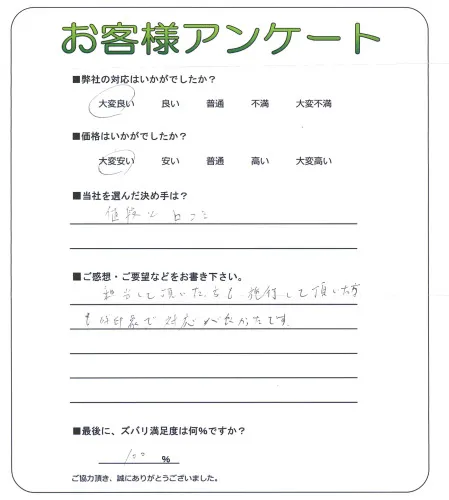 お客様アンケート
■弊社の対応はいかがでしたか？
大変良い 良い 普通 不満 大変不満
■価格はいかがでしたか？
大変安い 安い 普通 高い 大変高い
■当社を選んだ決め手は？
値段と口コミ
■ご感想・ご要望などをお書き下さい。
担当して頂いた方も施行して頂いた方
も好印象で対応が良かったです。
■最後に、ズバリ満足度は何%ですか？
100 %
ご協力頂き、誠にありがとうございました。